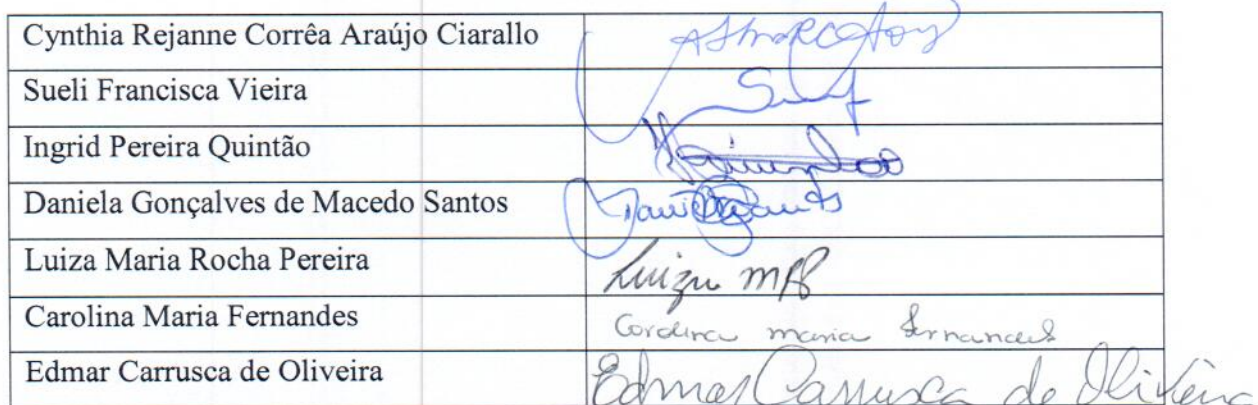 Cynthia Rejanne Corrêa Araújo Ciarallo
Sueli Francisca Vieira
Ingrid Pereira Quintão
Daniela Gonçalves de Macedo Santos
Luiza Maria Rocha Pereira Luiza MRP
Carolina Maria Fernandes Carolina maria Fernandes
Edmar Carrusca de Oliveira Edmar Carrusca de Oliveira